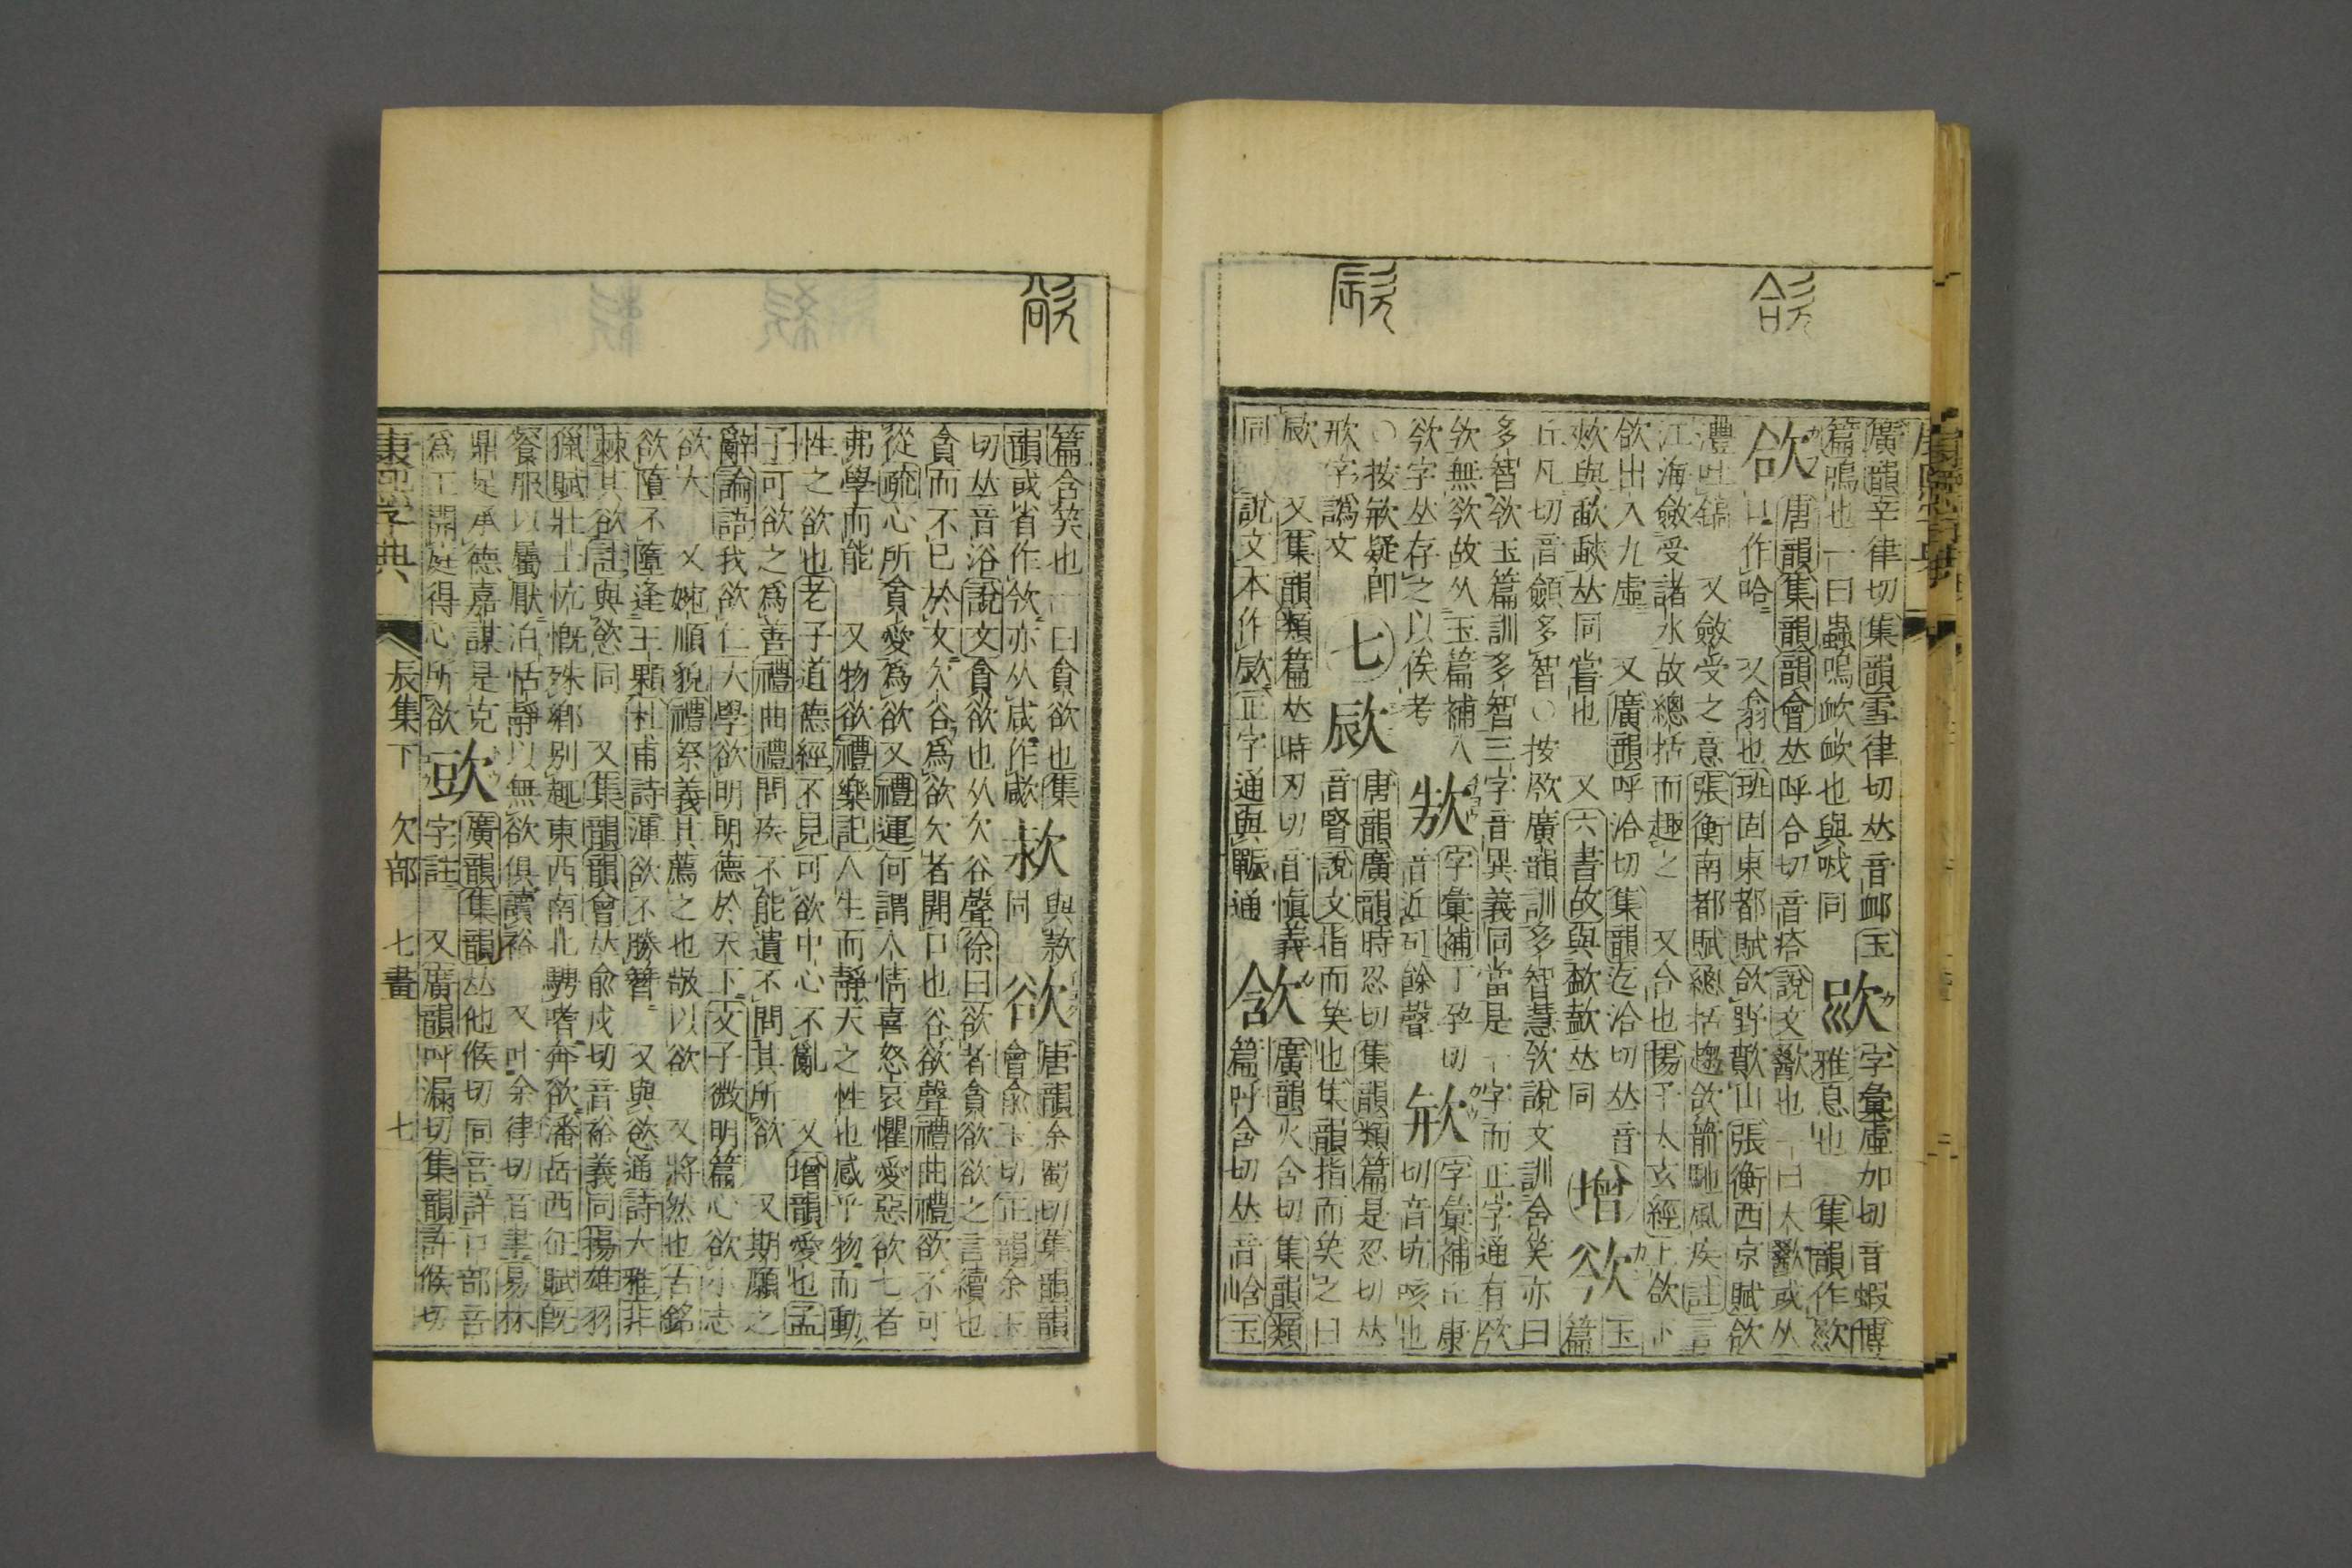 廣韻辛律切集韻雪律切𠀤音卹玉
篇鳴也一曰蟲鳴欰欰也與㖅同
字彙虛加切音蝦博
雅息也
集韻作
欱
唐韻集韻韻會𠀤呼合切音㕎說文歠也一曰大歠或从
口作哈
又翕也班固東都賦欱野歕山張衡西京賦欱
灃吐鎬
又斂受之意張衡南都賦總括趨欱箭馳風疾註言
江海斂受諸水故總括而趣之
又合也揚子太玄經上欱下
欱出入九虛
又廣韻呼洽切集韻迄洽切𠀤音
同嘗也
又六書故與
𠀤同
增
玉
篇
丘凡切音
多智○按
廣韻訓多智慧
說文訓含笑亦曰
多智
玉篇訓多智三字音異義同當是一字而正字通有
無
故从玉篇補入
字𠀤存之以俟考
字彙補丁孕切
音近可餘聲
字彙補丘康
切音坑咳也
○按
疑卽
字譌文
七
㰮
唐韻廣韻時忍切集韻類篇是忍切𠀤
音腎說文指而笑也集韻指而笑之曰
㰮
又集韻類篇𠀤時刃切音愼義
同
說文本作㰮正字通與賑通
廣韻火含切集韻類
篇呼含切𠀤音峆玉
篇含笑也一曰貪欲也集
韻或省作欦亦从咸作㰹
欶
與款
同
欲
唐韻余蜀切集韻韻
會俞玉切正韻余玉
切𠀤音浴說文貪欲也从欠谷聲徐曰欲者貪欲欲之言續也
貪而不已於文欠谷爲欲欠者開口也谷欲聲禮曲禮欲不可
從疏心所貪愛爲欲又禮運何謂人情喜怒哀懼愛惡欲七者
弗學而能
又物欲禮樂記人生而靜天之性也感乎物而動
性之欲也老子道德經不見可欲中心不亂
又增韻愛也孟
子可欲之爲善禮曲禮問疾不能遺不問其所欲
又期願之
辭論語我欲仁大學欲明明德於天下文子微明篇心欲小志
欲大
又婉順貌禮祭義其薦之也敬以欲
又將然也古銘
欲墮不墮逢王顆杜甫詩渾欲不勝簪
又與慾通詩大雅非
棘其欲註與慾同
又集韻韻會𠀤俞戍切音裕義同揚雄羽
獵賦壯士忼慨殊鄕別趣東西南北騁嗜奔欲潘岳西征賦旣
餐服以屬厭泊恬靜以無欲俱讀裕
又叶余律切音聿易林
鼎足承德嘉謀是克
爲王開庭得心所欲
㰯
廣韻集韻𠀤他候切同咅詳口部咅
字註
又廣韻呼漏切集韻許候切
康熙字典
辰集下
欠部
七畫
七